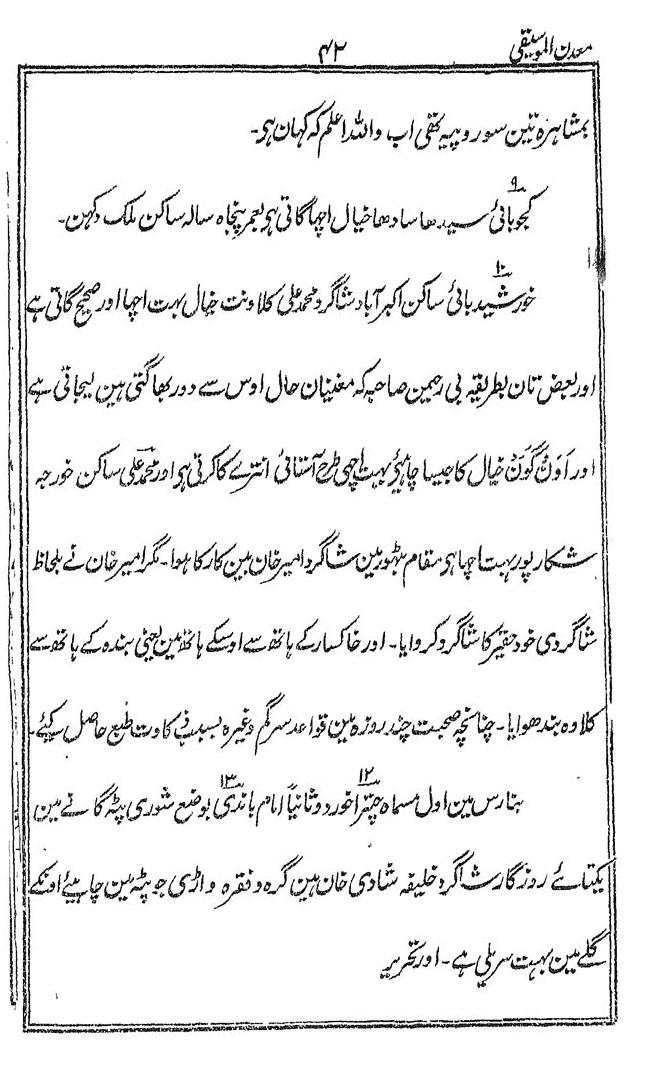 معدن الموسیقی ۴۲
بمشاہرہ تین سو روپیہ تھی اب واللہ اعلم کہ کہان ہی۔
۹
کجو بائی سیدھا سادھا خیال اچھا گاتی ہی بعمر پنجاہ سالہ ساکن ملک دکہن۔
۱۰
خورشید بائی ساکن اکبر آباد شاگرد محمد علی کلاونت خیال بہت اچھا اور صحیح گاتی ہے
اور بعض تان بطریقہ بی رحیمن صاحبہ کہ مغنیان حال اوس سے دور بھاگتی ہین لیجاتی ہے
اور خیال کا جیسا چاہیٔے بہت اچھی طرح آستائی انترے کا کرتی ہی اور محمد علی ساکن خورجہ
شکارپور بہت اچہا ہی مقام مین شاگرد امیر خان بین کار کا ہوا۔ مگر امیر خان نے بلحاظ
شاگردی خود حقیر کا شاگرد کروایا۔ اور خاکسار کے ہاتھ سے اوسکے ہاتھ مین یعنی بندہ کے ہاتھ سے
کلاوہ بندھوایا۔ چنانچہ صحبت چند روزہ مین قواعد سرگم وغیرہ بسبب ذکاوت طبع حاصل کیٔے۔
۱۲ ۱۳
بنارس مین اول مسماہ چترا خورد و ثانیاً امام باندی بوضع شوری پٹہ گانے مین
یکتائے روزگار شاگرد خلیفہ شادی خان ہین گرہ و فقرہ واڑی جو پٹہ مین چاہیٔے اونکے
گلے مین بہت سریلی ہے۔ اور تحریر